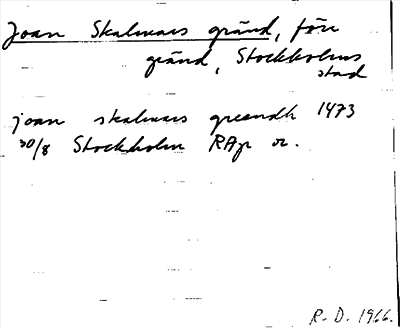 Joan Skalmars gränd, förr
gränd, Stockholms
stad
joan skalmars greendh 1473
30/8 Stockholm RAp or.
R. D. 1966.